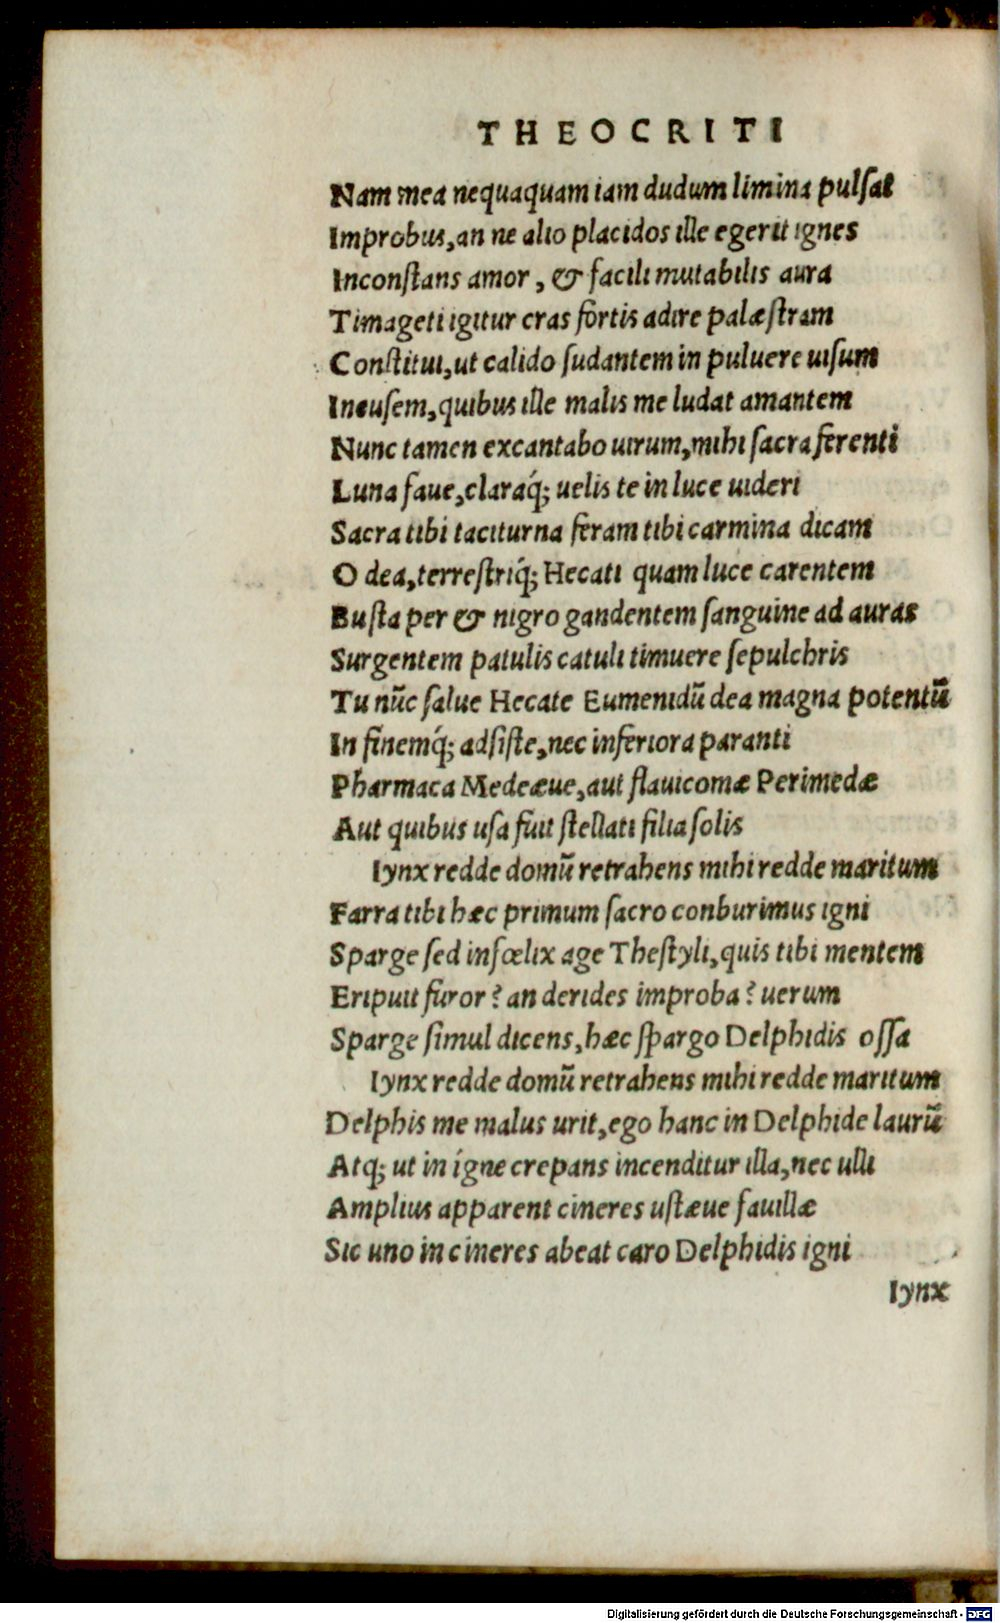 THEOCRITI
Nam mea nequaquam iam dudum limina pulsat
Improbus, an ne alio placidos ille egerit ignes
Inconstans amor, & facili mutabilis aura
Timageti igitur cras fortis adire palæstram
Constitui, ut calido sudantem in puluere uisum
Incusem, quibus ille malis me ludat amantem
Nunc tamen excantabo uirum, mihi sacra ferenti
Luna faue, claraq́; uelis te in luce uideri
Sacra tibi taciturna feram tibi carmina dicam
O dea, terrestriq́; Hecati quam luce carentem
Busta per & nigro gandentem sanguine ad auras
Surgentem patulis catuli timuere sepulchris
Tu nūc salue Hecate Eumenidū dea magna potentū
In finemq́; adsiste, nec inferiora paranti
Pharmaca Medeæue, aut flauicomæ Perimedæ
Aut quibus usa fuit stellati filia solis
Iynx redde domū retrahens mihi redde maritum
Farra tibi hæc primum sacro conburimus igni
Sparge sed infœlix age Thestyli, quis tibi mentem
Eripuit furor? an derides improba? uerum
Sparge simul dicens, hæc spargo Delphidis ossa
Iynx redde domū retrahens mihi redde maritum
Delphis me malus urit, ego hanc in Delphide laurū
Atq; ut in igne crepans incenditur illa, nec ulli
Amplius apparent cineres ustæue fauillæ
Sic uno in cineres abeat caro Delphidis igni
Iynx
Digitalisierung gefördert durch die Deutsche Forschungsgemeinschaft - DFG